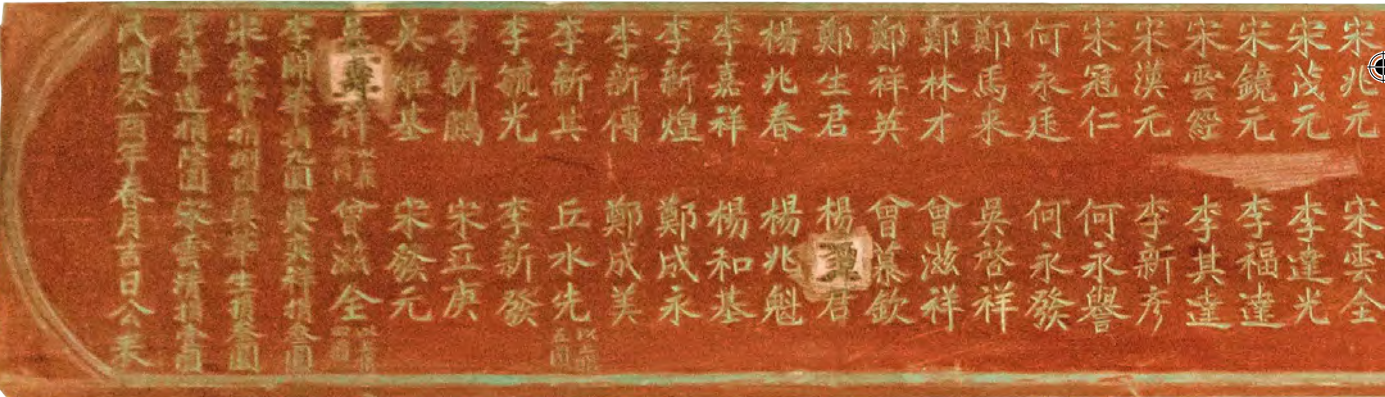 宋兆元 宋雲全
宋茂元 李達光
宋鏡元 李福達
宋雲經 李其達
宋漢元 李新彥
宋冠仁 何永譽
何永廷 何永發
鄭馬來 吳啓祥
鄭林才 曾滋祥
鄭祥英 曾慕欽
鄭生君 楊譚君
楊兆春 楊兆魁
李嘉祥 楊和基
李新煌 鄭成永
李新傳 鄭成美
李新其 丘水先 以上捐五圓
李毓光 李新發
李新鵬 宋正庚
吳維基 宋發元
祥 曾滋全
李開華捐九圓 吳英祥捐叁圓
宋雲常捐捌圓 吳華生捐叁圓
李華達捐陸圓 宋雲清捐叁圓
民國癸酉年春月吉日公表